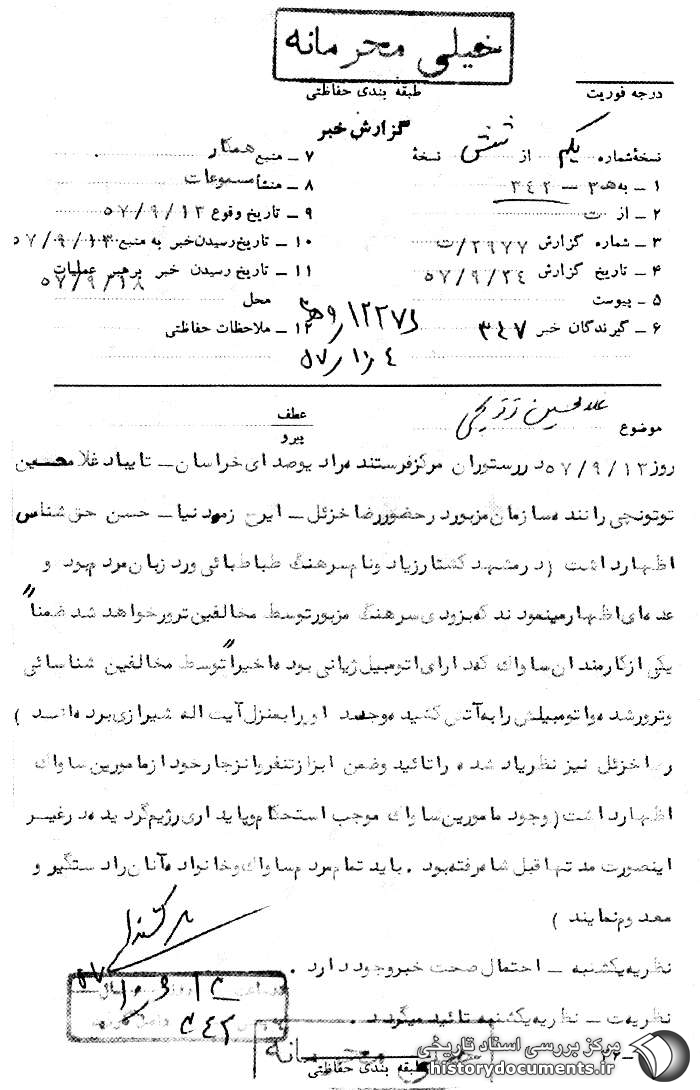 خیلی محرمانه
طبقه بندی حفاظتی
درجه فوریت
گزارش خبر
نسخهٔ شماره یکم از شش نسخهٔ
۱ – به ه‍ ۳ – ۳۴۲
۲ – از ت
۳ – شماره گزارش ۲۹۷۷/ت
۴ – تاریخ گزارش ۵۷/۹/۲۴
۵ – پیوست
۶ – گیرندگان خبر ۳۴۷
۷ – منبع همکار
۸ – منشأ مسموعات
۹ – تاریخ وقوع ۵۷/۹/۱۳
۱۰ – تاریخ رسیدن خبر به منبع ۵۷/۹/۱۳
۱۱ – تاریخ رسیدن خبر برهبر عملیات
۵۷/۹/۱۸
محل
۱۲ – ملاحظات حفاظتی
۵۷/۱۰/۴
موضوع غلامحسین توتونچی
عطف
پیرو
روز ۵۷/۹/۱۳ در رستوران مرکز فرستنده رادیو صدای خراسان – تایباد غلامحسین
توتونچی راننده سازمان مزبور در حضور رضا خزئل – ایرج زمرد نیا – حسن حق شناس
اظهار داشت (در مشهد کشتار زیاد و نام سرهنگ طباطبائی ورد زبان مردم بود و
عده ای اظهار مینمودند که بزودی سرهنگ مزبور توسط مخالفین ترور خواهد شد ضمناً
یکی از کارمندان ساواک که دارای اتومبیل ژیانی بوده اخیراً توسط مخالفین شناسائی
و ترور شده و اتومبیلش را به آتش کشیده و جسد او را به منزل آیت اله شیرازی برده اند)
رضا خزئل نیز نظر یاد شده را تائید و ضمن ابراز تنفر و انزجار خود از مامورین ساواک
اظهار داشت (وجود مامورین ساواک موجب استحکام و پایداری رژیم گردیده در غیر
اینصورت مدتها قبل شاه رفته بود . باید تمام مردم ساواک و خانواده آنان را دستگیر و
معدوم نمایند)
نظریه یکشنبه – احتمال صحت خبر وجود دارد .
نظریه ت – نظریه یکشنبه تائید میگردد .
خیلی محرمانه
طبقه بندی حفاظتی
مرکز بررسی اسناد تاریخی
historydocuments.ir